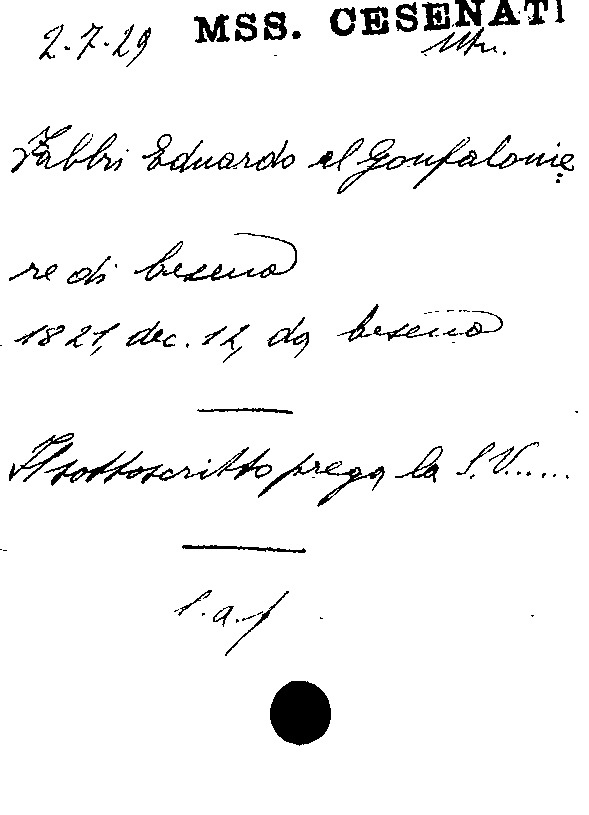 MSS. CESENATI
2-7-29
Fabbri Eduardo al Gonfalonie=
re di Cesena
1821, dec. 12, da Cesena
Il sottoscritto prega la S.V......
l.a.f